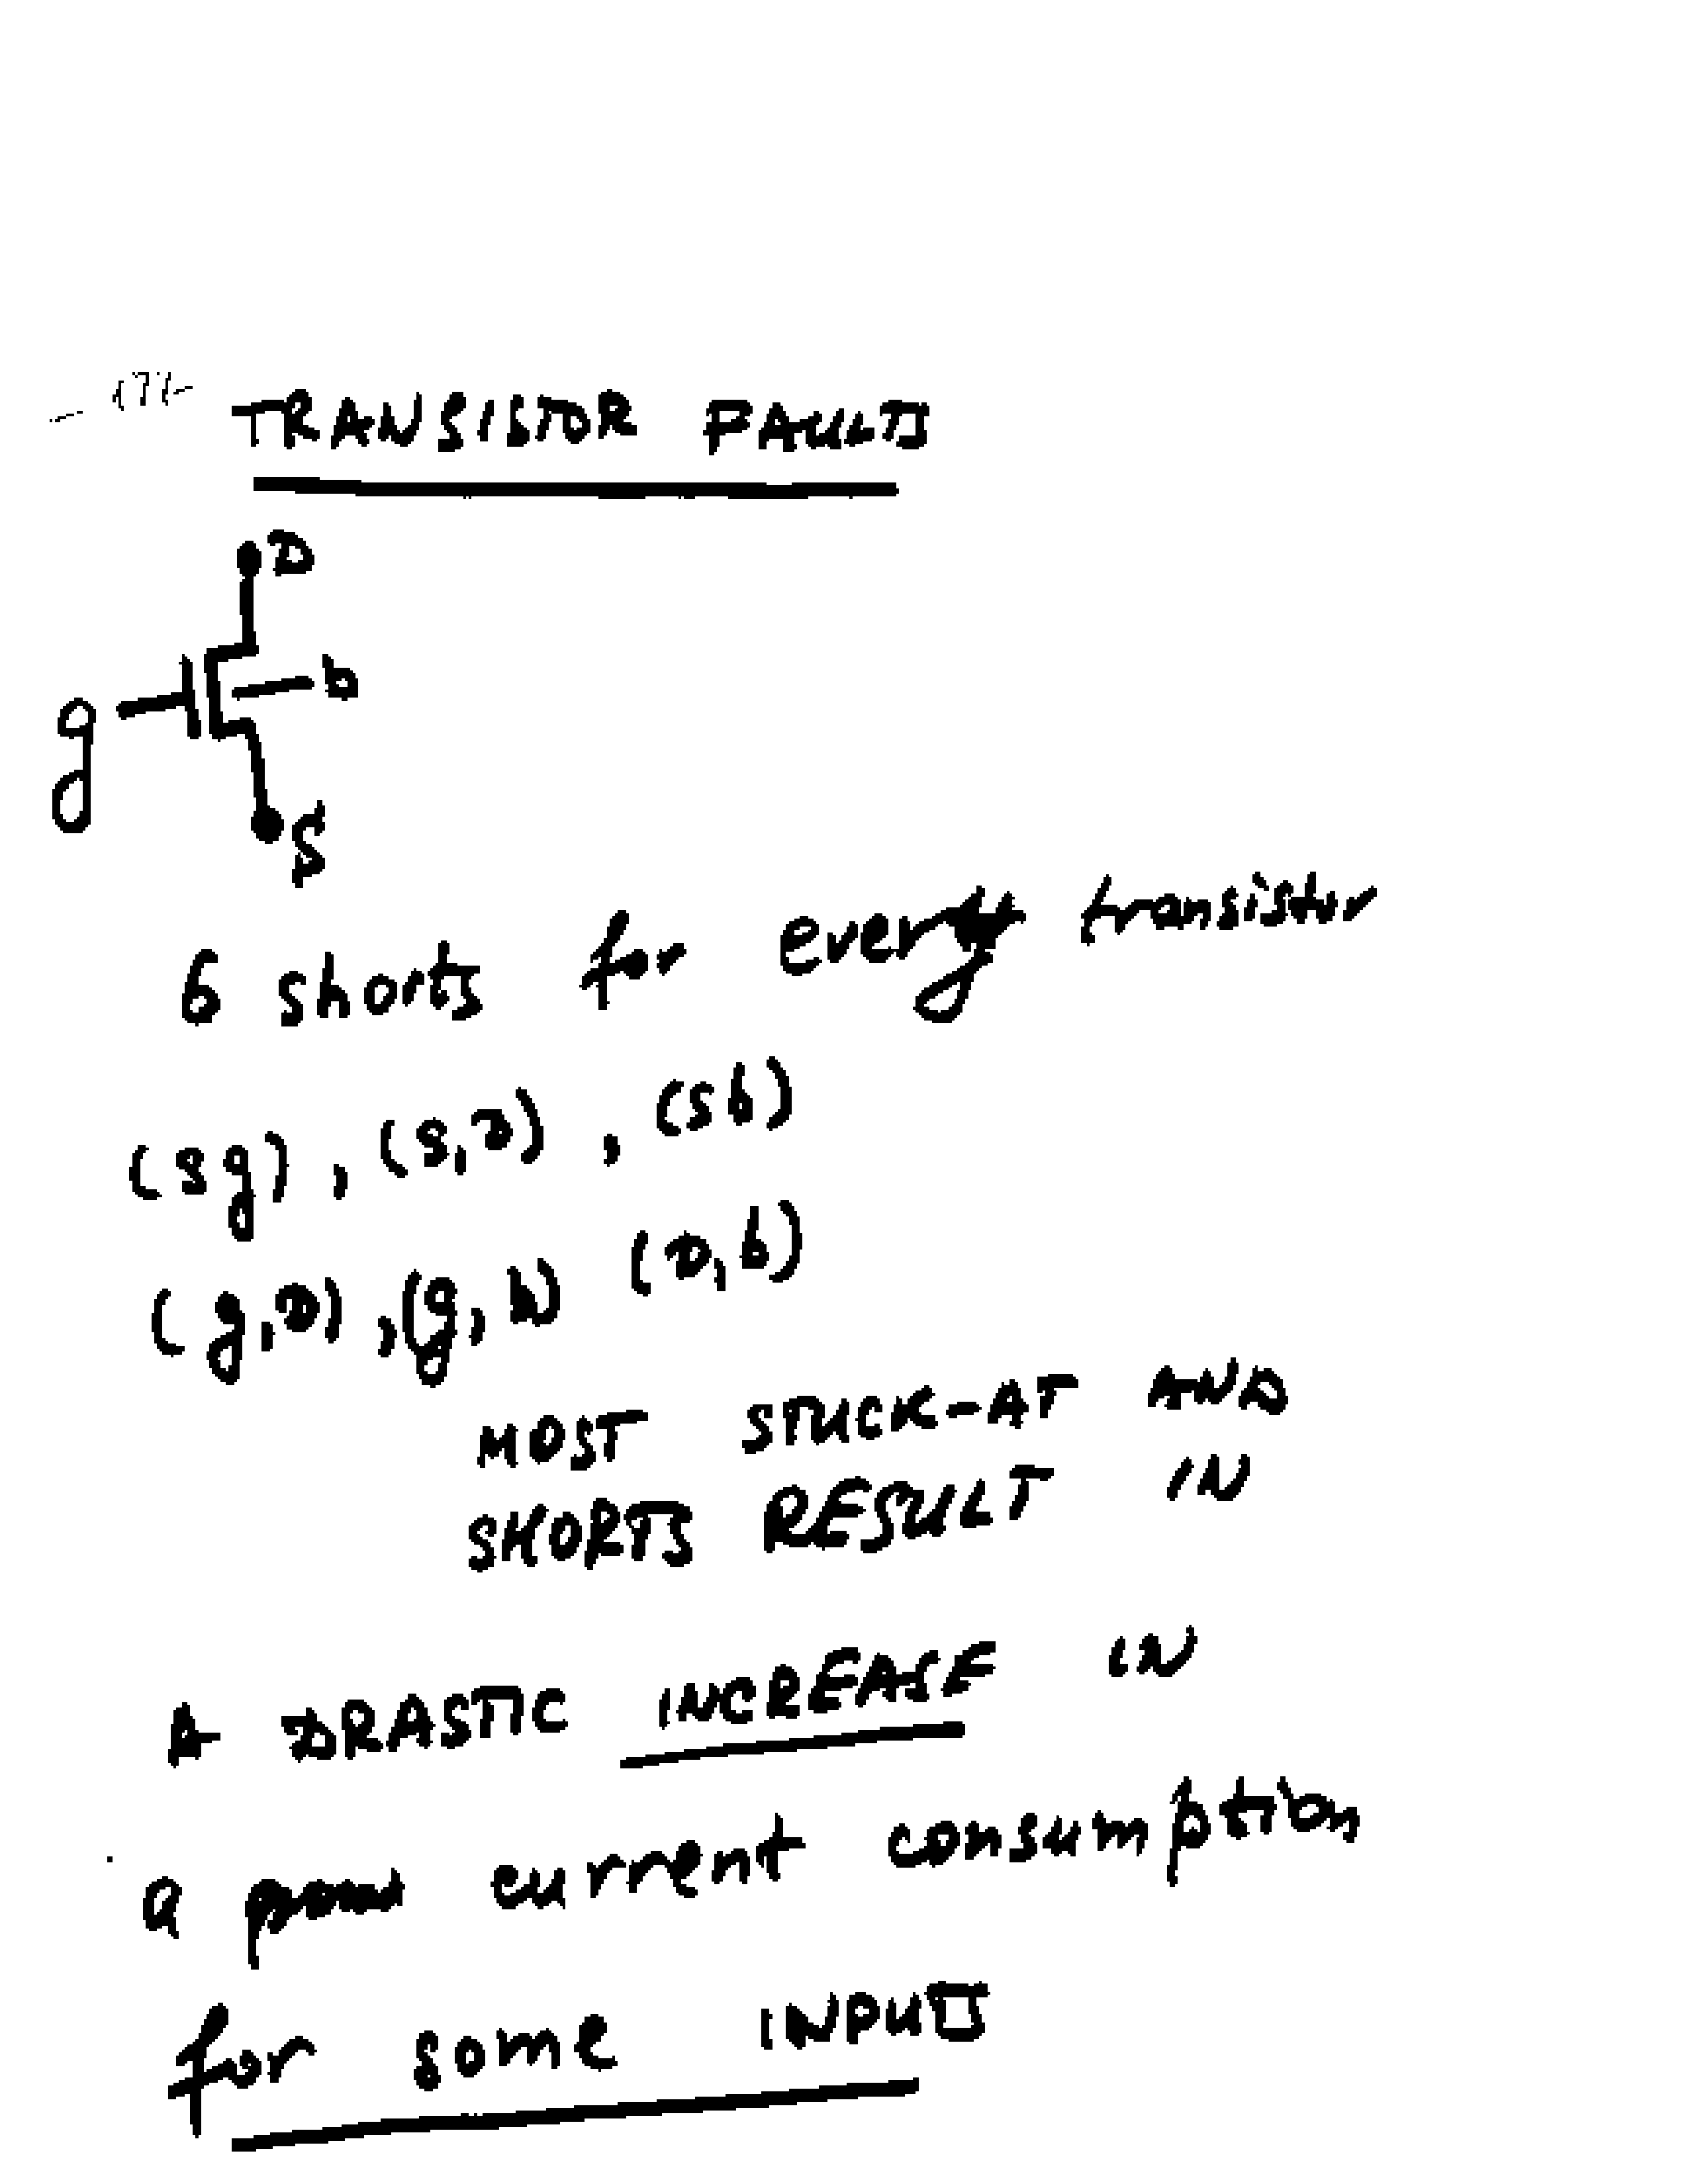 TRANSISTOR FAULTS
D
b
g
S
6 shorts for every transistor
(sg), (s,D), (sb)
(g,D), (g,b) (D,b)
MOST STUCK-AT AND
SHORTS RESULT IN
A DRASTIC INCREASE IN
a current consumption
for some INPUTS